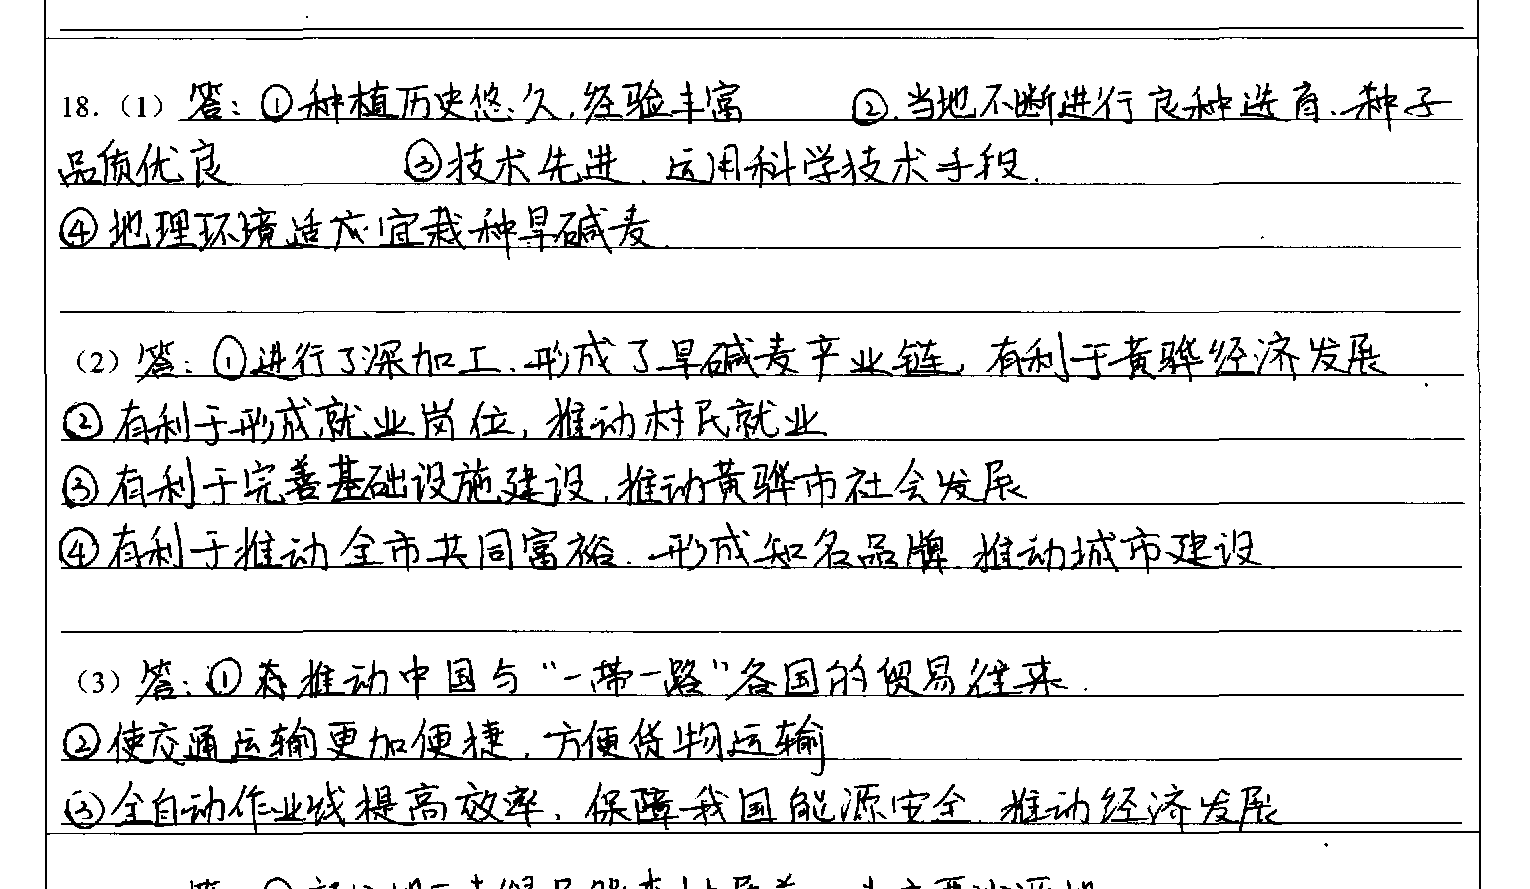 18.（1）答：①种植历史悠久，经验丰富 ②.当地不断进行良种选育、种子
品质优良 ③技术先进、运用科学技术手段.
④地理环境适应宜栽种旱碱麦.
（2）答：①进行了深加工、形成了旱碱麦产业链，有利于黄骅经济发展
②有利于形成就业岗位，推动村民就业
③有利于完善基础设施建设，推动黄骅市社会发展
④有利于推动全市共同富裕.形成知名品牌.推动城市建设
（3）答：①推动中国与“一带一路”各国的贸易往来.
②使交通运输更加便捷，方便货物运输
③全自动作业线提高效率，保障我国能源安全.推动经济发展